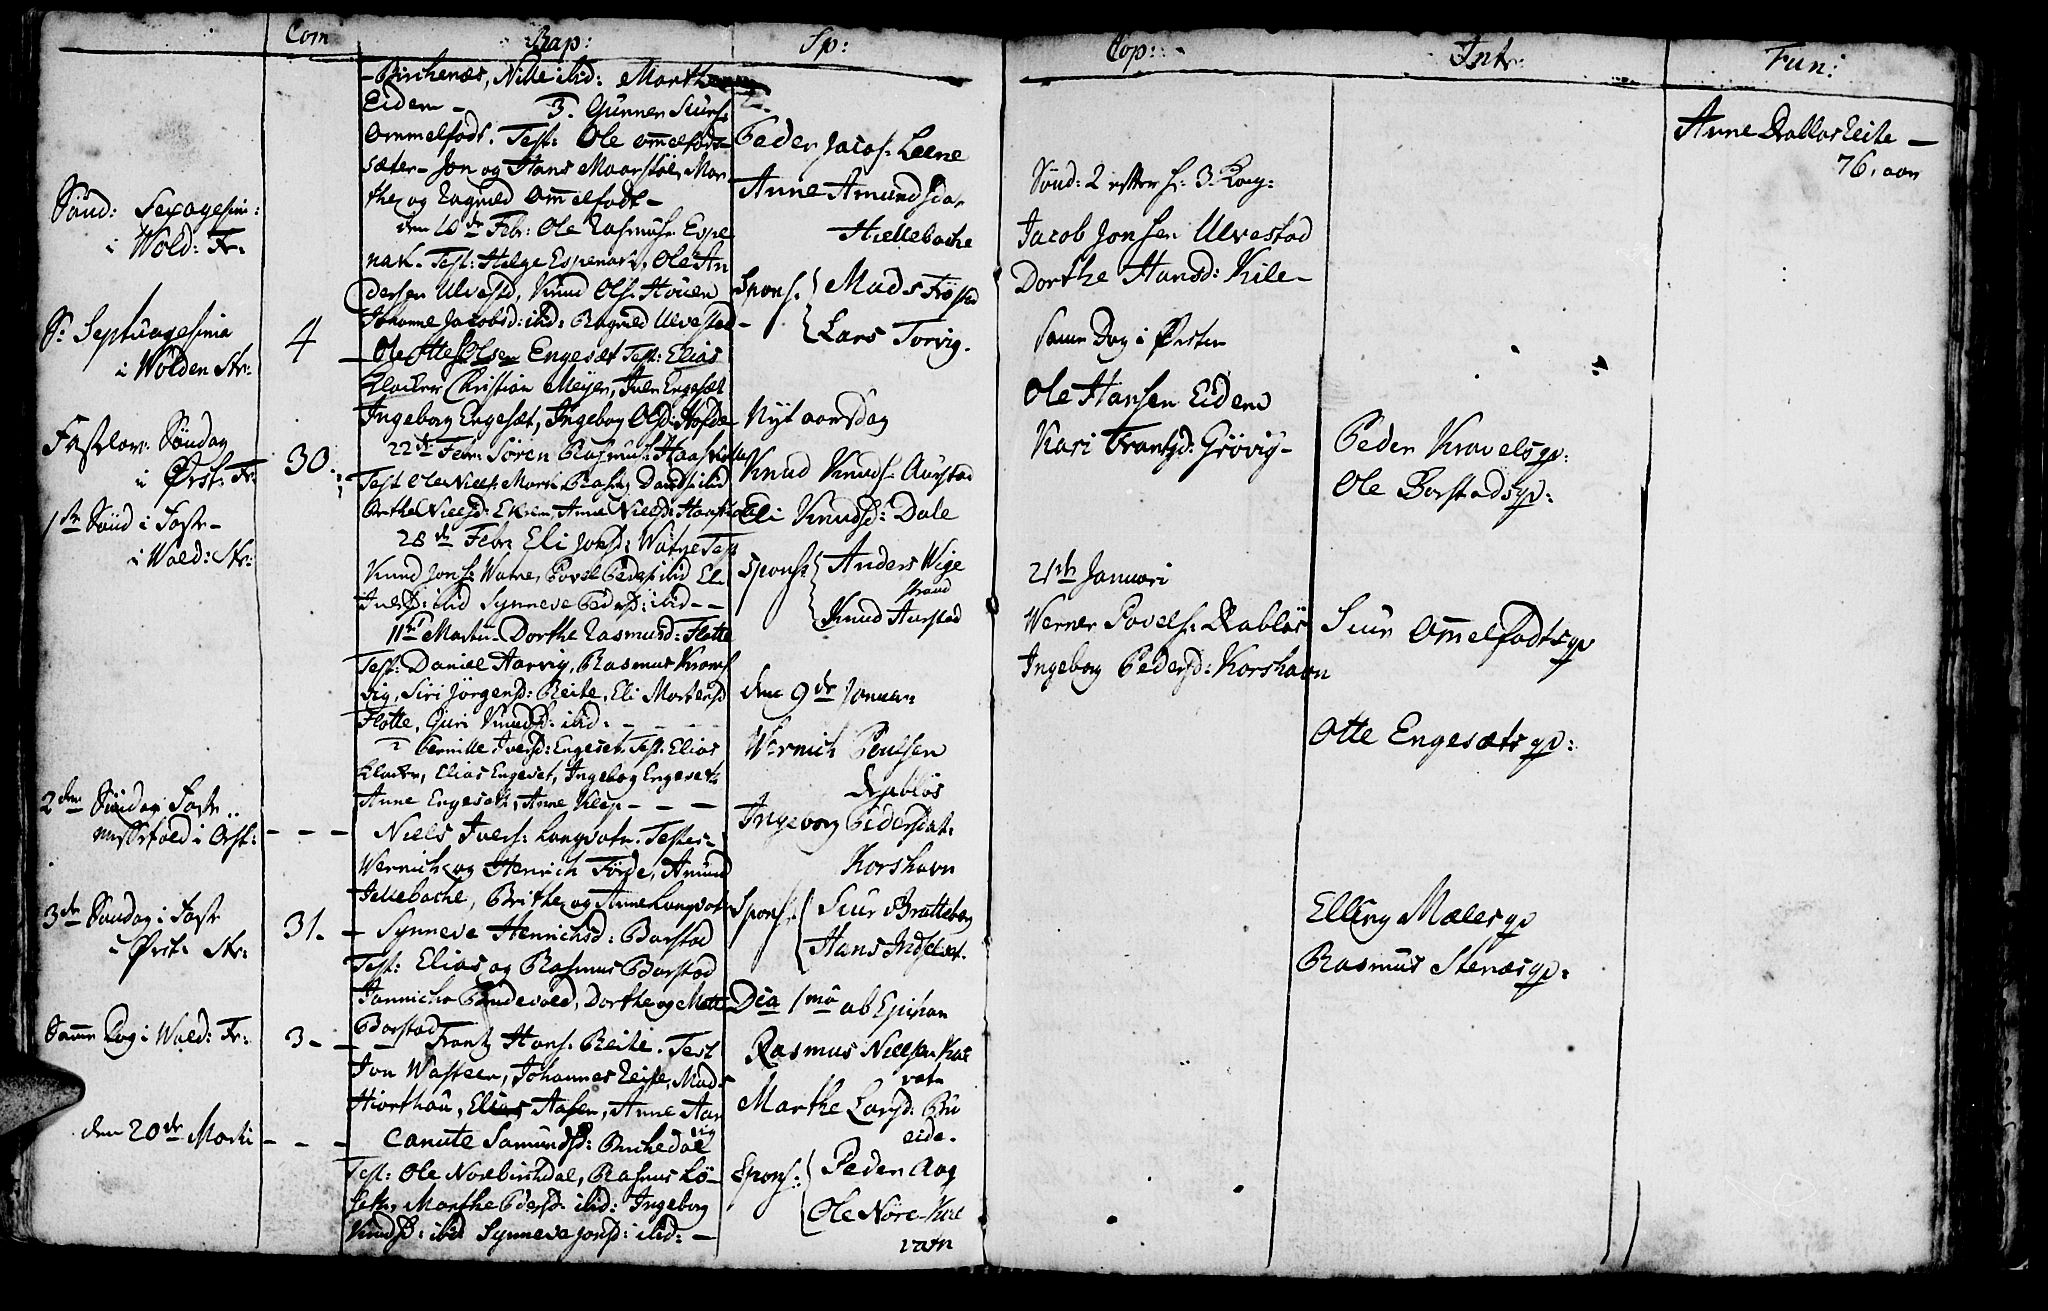 Com
Bap:
Sp:
Cop:
Intr:
Fun:
Sönd: Sexagesim:
i Wold: Fr:
S: Septuagesima
i Wolden Str:
Fastelav: Söndag
i Ørst: Fr:
1ste Sönd i Faste
i Wold: Str:
2den Söndag i Faste
Messefald i Ørst:
3die Söndag i Faste
i Ørst: Str:
Samme Dag i Wold: Fr:
den 20de Marti
4
30.
- - -
31. -
3 - - -
- - -
Birchenæs, Nille ibid: Marthe
Eidem - 3. Gunner Siurs:
Ommelfodt. Test: Ole Ommelfodt
sæter - Jon og Hans Maarstöl, Mar
the og Ragnild Ommelfodt -
den 16de Febr: Ole Rasmus: Espe
nak - Test: Helge Espenak, Ole An
dersen Ulvestd, Knud Ols: Hoven
Johanne Jacobsd: ibid: Ragnild Ulvestad -
- Ole Otte Olsen Engesæt Test: Elias
Klocker Christian Meyer, Iver Engesæt
Ingeborg Engesæt, Ingeborg Olsd: Hofde
22de Febr: Sören Rasmus:
Test Ole Niels: ibid
Berthe Nielsd: Ekrem, Anne Nielsd:
28de Febr: Eli Jonsd: Watne Test
Knud Jons: Watne, Povel Peders: ibid Eli
Iversd: ibid Synneve Pedersd: ibid - -
11te Marti - Dorthe Rasmusd: Flotte
Test: Daniel Aarvig, Rasmus Krums
vig, Siri Jörgensd: Reite, Eli Mortensd
Flotte, Guri Knudsd: ibid: - - - -
Pernille Iversd: Engeset. Test: Elias
Klocker, Elias Engeset, Ingeborg Engeset
Anne Engeset, Anne Klep - - -
Niels Ivers: Langvatn. Testes:
Wernich og Henrich Förde, Amund
Hellebache, Brithe og Anne Langvatn
Synneve Henrichsd: Barstad
Test: Elias og Rasmus Barstad
Jannicke Brudevold, Dorthe og Mette
Barstad
Frantz Hans: Reite. Test
Jon Wasteen, Johannes Reite, Mads
Hiorthau, Elias Aasen, Anne Aar
vig
Canute Samundsd: Birchedal
Test: Ole Norebirchdal, Rasmus Lö-
seth, Marthe Pedersd: ibid: Ingeborg
Knudsd: ibid Synneve Jonsd: ibid: -
Peder Jacobs: Leene
Anne Amundsda.
Hellebache
Spons: Mads Frøstad
Lars Torvig.
Nyt aarsdag
Knud Knuds: Aarstad
Eli Knudsd: Dale
Spons: Anders Wige
strand
Knud Aarstad
den 9de Januar:
Wernich Poulsen
Rabløs
Ingeborg Pedersdat:
Korshavn
Spons: Siur Bratteberg
Hans Indselset.
Dca 1mo ab Epiphan
Rasmus Nielsen Kal
vatn
Marthe Larsd: Bu
eide.
Spons: Peder Aag
Ole Nöre-Kal
vatn
Sönd: 2 efter h: 3. Kong:
Jacob Jonsen Ulvestad
Dorthe Hansd: Kile -
samme Dag i Ørsten
Ole Hansen Eidem
Kari Frantzd: Grøvig -
21de Januari
Werner Povels: Rabløs
Ingeborg Pedersd: Korshavn
Peder Kravels qv:
Ole Barstads qv:
Siur Ommelfodts qv
Otte Engesæts qv:
Elling Mæles qv
Rasmus Stenæs qv:
Anne Rabløs Leite -
76. aar